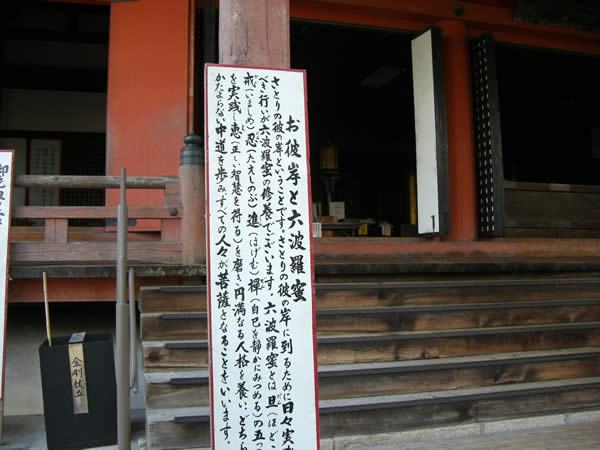 お彼岸と六波羅蜜
さとりの彼の岸ということです。さとりの彼の岸に到るために日々実
べき行いが六波羅蜜の修養でございます。六波羅蜜とは旦(ほどこ
戒(いましめ)忍(たえしのぶ)進(はげむ)禪(自己を静かにみつめる)の五つ
を実践し恵(正しい智慧を得る)を磨き円満なる人格を養い、どちら
かたよらない中道を歩みすべての人々が菩薩となることをいいます。
金剛杖立